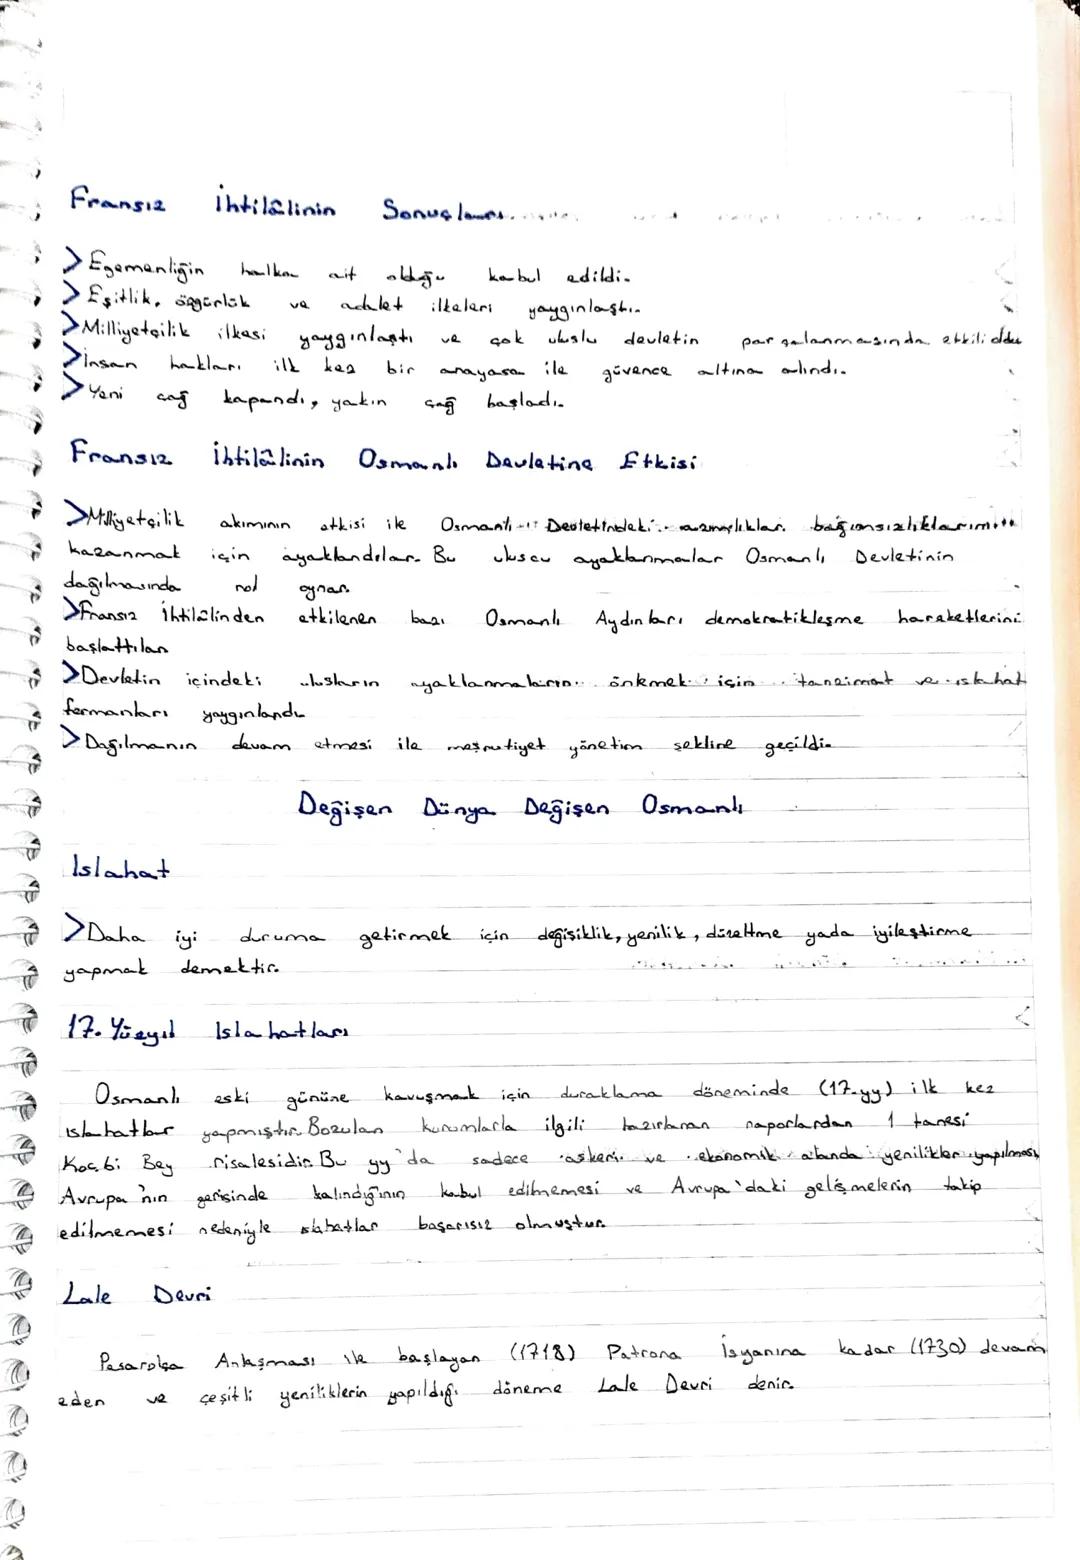 Fransız İhtilâlinin Sonuçları
>Egemenliğin halka ait olduğu kabul edildi.
>Eşitlik, özgürlük ve adalet ilkeleri yaygınlaştı.
>Milliyetçilik ilkesi yaygınlaştı ve çok uluslu devletin parçalanmasında etkili oldu
>İnsan hakları ilk kez bir anayasa ile güvence altına alındı.
>Yeni çağ kapandı, yakın çağ başladı.
Fransız İhtilâlinin Osmanlı Devletine Etkisi
>Milliyetçilik akımının etkisi ile Osmanlı Devletindeki azınlıklar bağımsızlıklarını
kazanmak için ayaklandılar. Bu ulusçu ayaklanmalar Osmanlı Devletinin
dağılmasında rol oynar.
>Fransız İhtilâlinden etkilenen bazı Osmanlı Aydınları demokratikleşme hareketlerini
başlattılar
>Devletin içindeki ulusların ayaklanmalarını önlemek için tanzimat ve ıslahat
fermanları yaygınlandı.
>Dağılmanın devam etmesi ile meşrutiyet yönetim şekline geçildi.
Değişen Dünya Değişen Osmanlı
Islahat
>Daha iyi duruma getirmek için değişiklik, yenilik, düzeltme yada iyileştirme
yapmak demektir.
17. Yüzyıl Islahatları
Osmanlı eski gününe kavuşmak için duraklama döneminde (17.yy) ilk kez
ıslahatlar yapmıştır. Bozulan kurumlarla ilgili hazırlanan raporlardan 1 tanesi
Koçbi Bey risalesidir. Bu yy'da sadece askeri ve ekonomik alanda yenilikler yapılması,
Avrupa'nın gerisinde kalındığının kabul edilmemesi ve Avrupa'daki gelişmelerin takip
edilmemesi nedeniyle ıslahatlar başarısız olmuştur.
Lale Devri
Pasarolça Anlaşması ile başlayan (1718) Patrona İsyanına kadar (1730) devam
eden ve çeşitli yeniliklerin yapıldığı döneme Lale Devri denir.